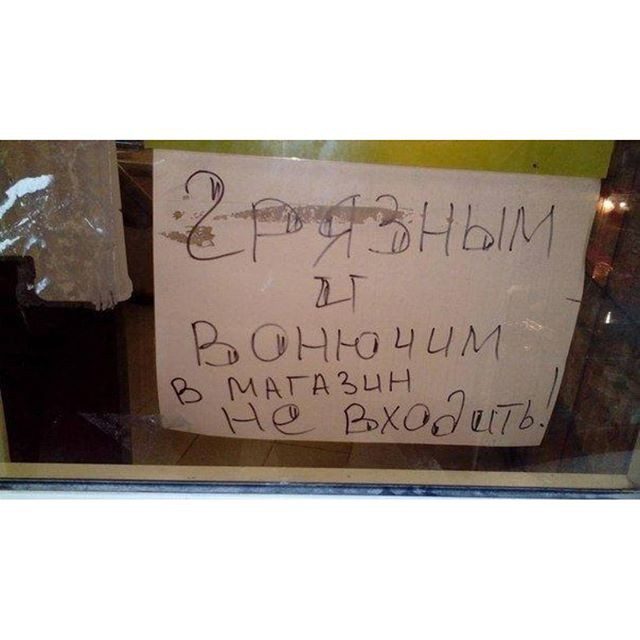 грязным
и
вонючим
в магазин
не входить!